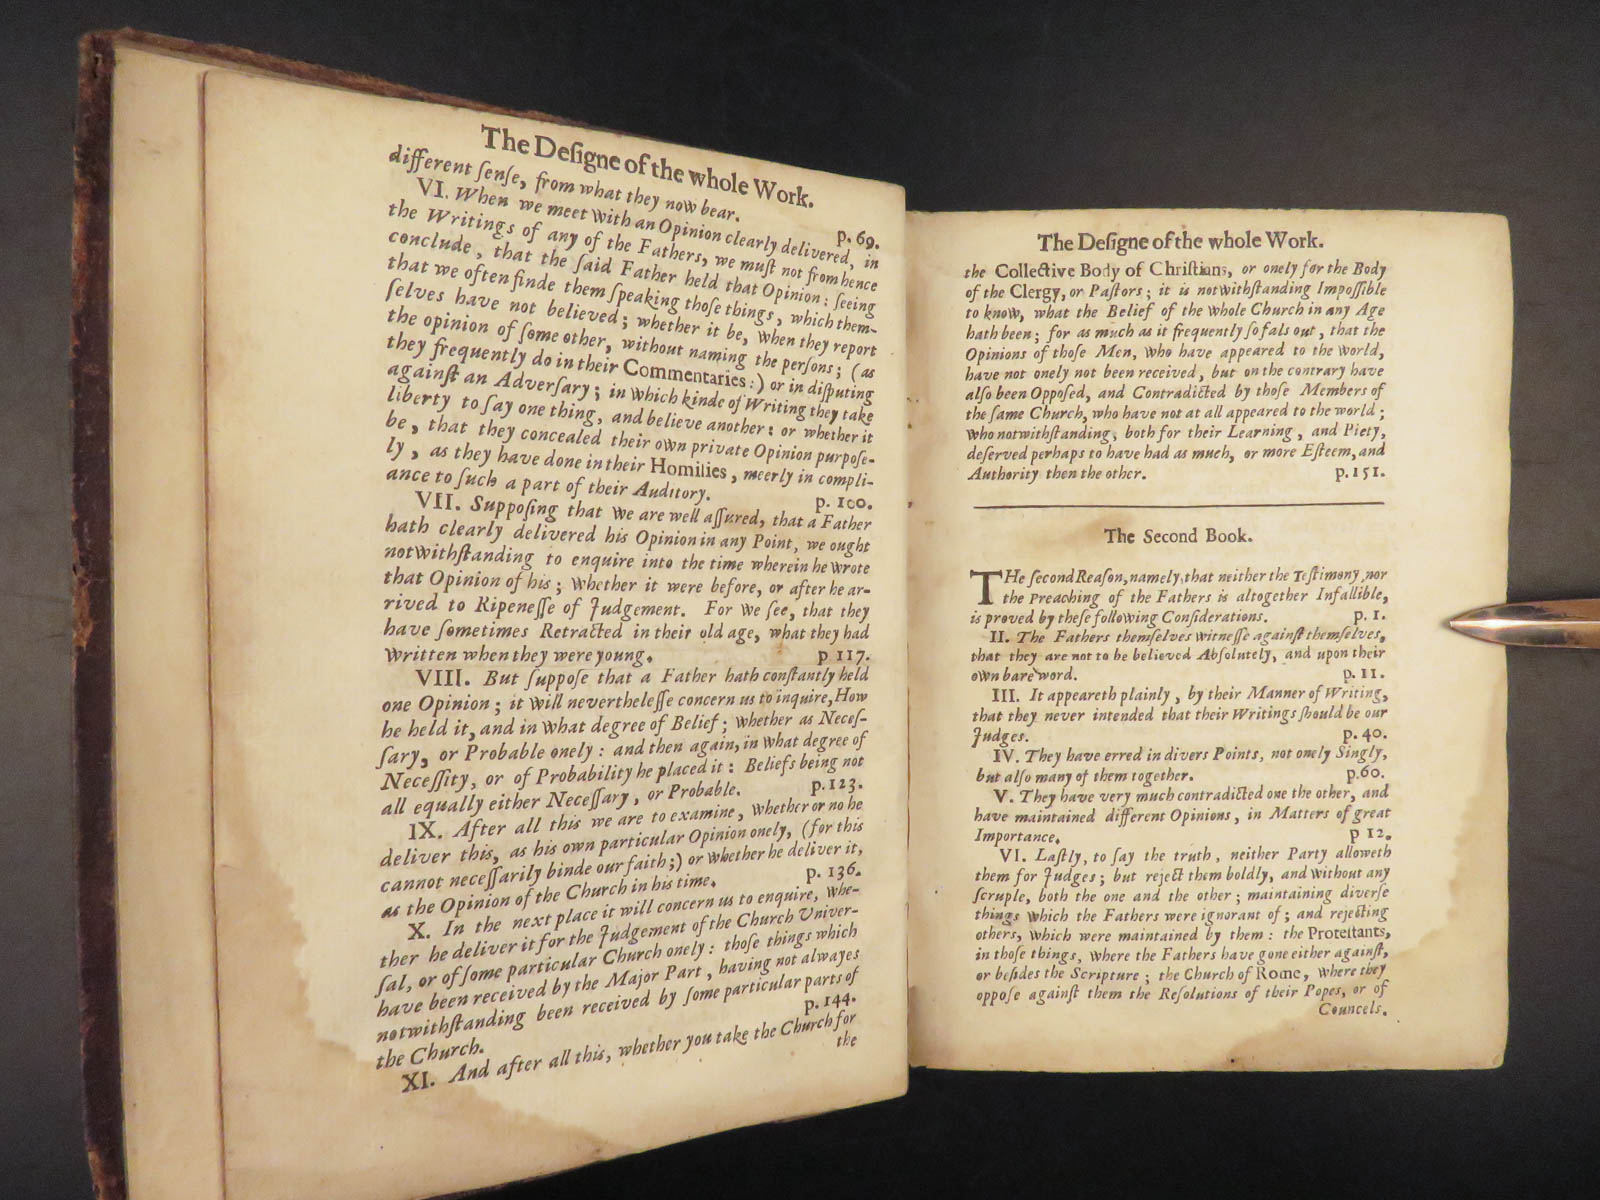 The Deſigne of the whole Work.
different ſenſe, from what they now bear. p. 69.
VI. When we meet with an Opinion clearly delivered, in
the Writings of any of the Fathers, we muſt not from hence
conclude, that the ſaid Father held that Opinion: ſeeing
that we often finde them ſpeaking thoſe things, which them-
ſelves have not believed; whether it be, when they report
the opinion of ſome other, without naming the perſons; (as
they frequently do in their Commentaries:) or in diſputing
againſt an Adverſary; in which kinde of Writing they take
liberty to ſay one thing, and believe another: or whether it
be, that they concealed their own private Opinion purpoſe-
ly, as they have done in their Homilies, meerly in compli-
ance to ſuch a part of their Auditory. p. 100.
VII. Suppoſing that we are well aſſured, that a Father
hath clearly delivered his Opinion in any Point, we ought
notwithſtanding to enquire into the time wherein he wrote
that Opinion of his; whether it were before, or after he ar-
rived to Ripeneſſe of Judgement. For we ſee, that they
have ſometimes Retracted in their old age, what they had
written when they were young. p 117.
VIII. But ſuppoſe that a Father hath conſtantly held
one Opinion; it will nevertheleſſe concern us to inquire, How
he held it, and in what degree of Belief; whether as Neceſ-
ſary, or Probable onely: and then again, in what degree of
Neceſſity, or of Probability he placed it: Beliefs being not
all equally either Neceſſary, or Probable. p. 123.
IX. After all this we are to examine, whether or no he
deliver this, as his own particular Opinion onely, (for this
cannot neceſſarily binde our faith;) or whether he deliver it,
as the Opinion of the Church in his time. p. 136.
X. In the next place it will concern us to enquire, whe-
ther he deliver it for the Judgement of the Church Univer-
ſal, or of ſome particular Church onely: thoſe things which
have been received by the Major Part, having not alwayes
notwithſtanding been received by ſome particular parts of
the Church. p. 144.
XI. And after all this, whether you take the Church for
the
The Deſigne of the whole Work.
the Collective Body of Chriſtians, or onely for the Body
of the Clergy, or Paſtors; it is notwithſtanding Impoſſible
to know, what the Belief of the whole Church in any Age
hath been; for as much as it frequently ſo fals out, that the
Opinions of thoſe Men, who have appeared to the world,
have not onely not been received, but on the contrary have
alſo been Oppoſed, and Contradicted by thoſe Members of
the ſame Church, who have not at all appeared to the world;
who notwithſtanding, both for their Learning, and Piety,
deſerved perhaps to have had as much, or more Eſteem, and
Authority then the other. p. 151.
The Second Book.
THe ſecond Reaſon, namely, that neither the Teſtimony nor
the Preaching of the Fathers is altogether Infallible,
is proved by theſe following Conſiderations. p. 1.
II. The Fathers themſelves witneſſe againſt themſelves,
that they are not to be believed Abſolutely, and upon their
own bare word. p. 11.
III. It appeareth plainly, by their Manner of Writing,
that they never intended that their Writings ſhould be our
Judges. p. 40.
IV. They have erred in divers Points, not onely Singly,
but alſo many of them together. p. 60.
V. They have very much contradicted one the other, and
have maintained different Opinions, in Matters of great
Importance. p 12.
VI. Laſtly, to ſay the truth, neither Party alloweth
them for Judges; but reject them boldly, and without any
ſcruple, both the one and the other; maintaining diverſe
things which the Fathers were ignorant of; and rejecting
others, which were maintained by them: the Proteſtants,
in thoſe things, where the Fathers have gone either againſt,
or beſides the Scripture; the Church of Rome, where they
oppoſe againſt them the Reſolutions of their Popes, or of
Councels.